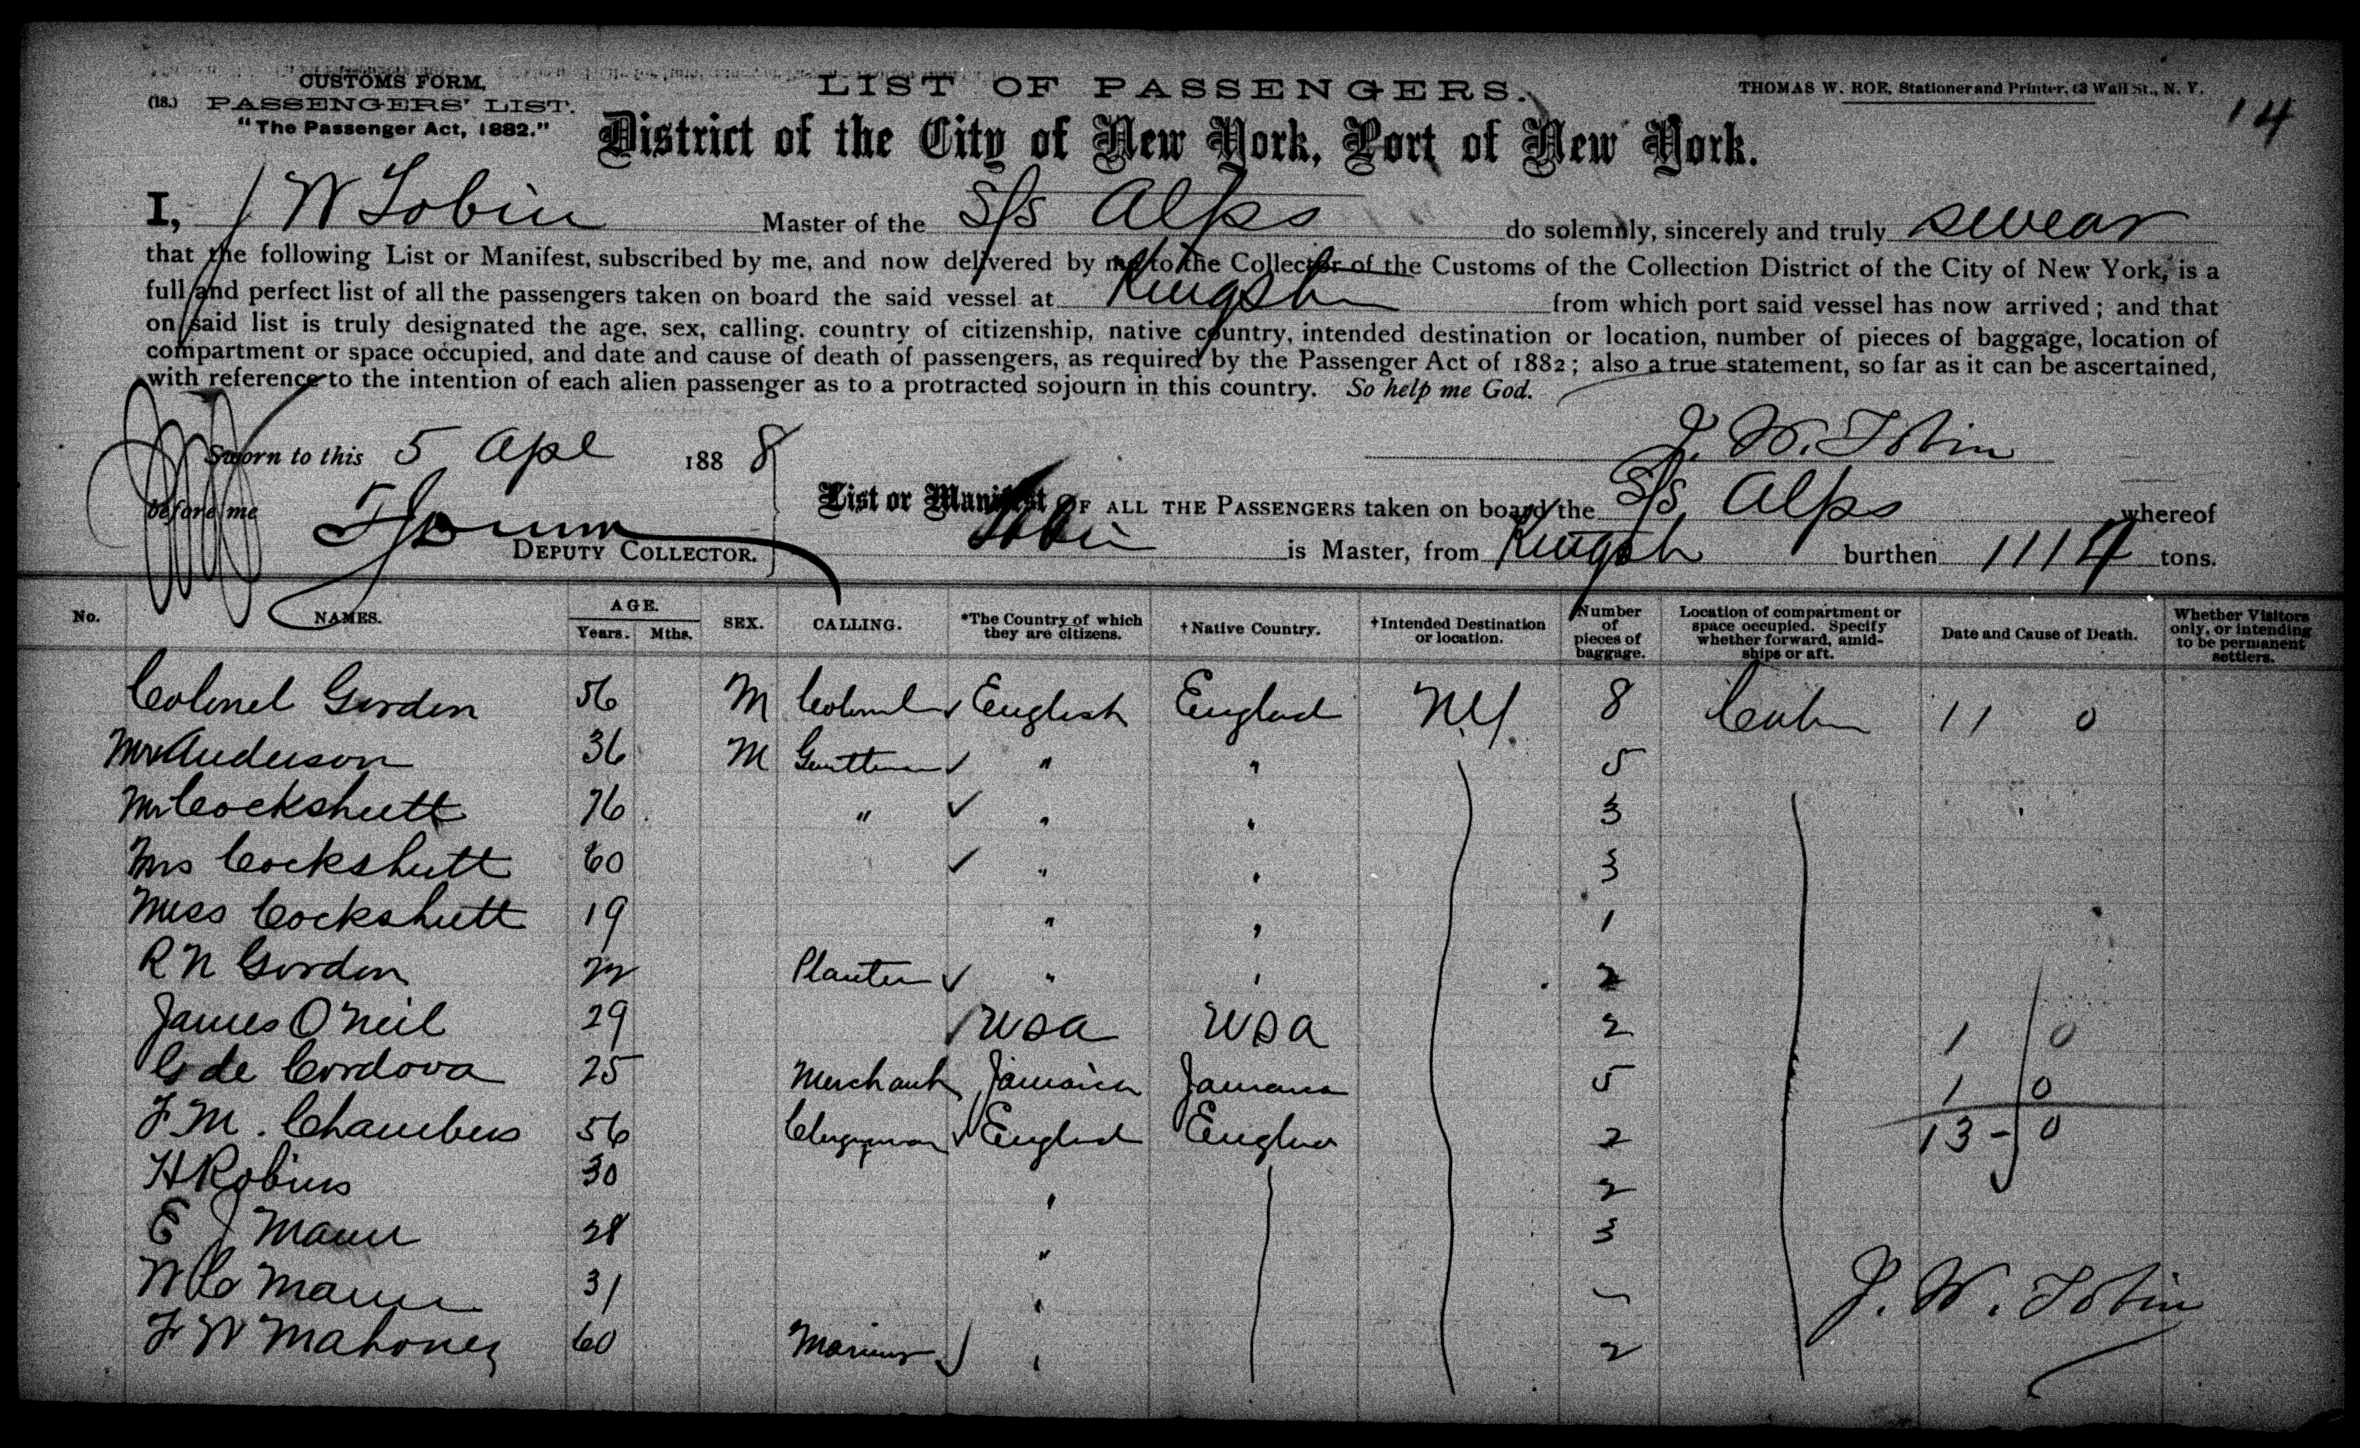 CUSTOMS FORM.
(18.) PASSENGERS' LIST.
"The Passenger Act, 1882."
LIST OF PASSENGERS.
THOMAS W. ROE, Stationer and Printer, 63 Wall St., N. Y.
14
District of the City of New York, Port of New York.
I, J W Tobin Master of the S/s Alps do solemnly, sincerely and truly swear
that the following List or Manifest, subscribed by me, and now delivered by me to the Collector of the Customs of the Collection District of the City of New York, is a
full and perfect list of all the passengers taken on board the said vessel at Kingston from which port said vessel has now arrived; and that
on said list is truly designated the age, sex, calling, country of citizenship, native country, intended destination or location, number of pieces of baggage, location of
compartment or space occupied, and date and cause of death of passengers, as required by the Passenger Act of 1882; also a true statement, so far as it can be ascertained,
with reference to the intention of each alien passenger as to a protracted sojourn in this country. So help me God.
J. W. Tobin
Sworn to this 5 Apl 1888
before me
DEPUTY COLLECTOR.
List or Manifest OF ALL THE PASSENGERS taken on board the S/s Alps whereof
Tobin is Master, from Kingston burthen 1114 tons.
No. NAMES. AGE. Years. Mths. SEX. CALLING. *The Country of which they are citizens. †Native Country. †Intended Destination or location. Number of pieces of baggage. Location of compartment or space occupied. Specify whether forward, amidships or aft. Date and Cause of Death. Whether Visitors only, or intending to be permanent settlers.
Colonel Gordon 56 M Colonel English England N.Y. 8 Cabin 11 0
Mr Anderson 36 M Gentleman " " 5
Mr Cockshutt 76 " " " 3
Mrs Cockshutt 60 " " 3
Miss Cockshutt 19 " " 1
R N Gordon Planter " " 2
James O'Neil 29 USA USA 2 1 0
C de Cordova 25 Merchant Jamaica Jamaica 5 1 0
F M. Chambers 56 Clergyman England England 2 13 - 0
H Robins 30 " 2
E J Mann 28 " 3
W C Mann 31 "
F W Mahoney 60 Mariner " 2
J. W. Tobin